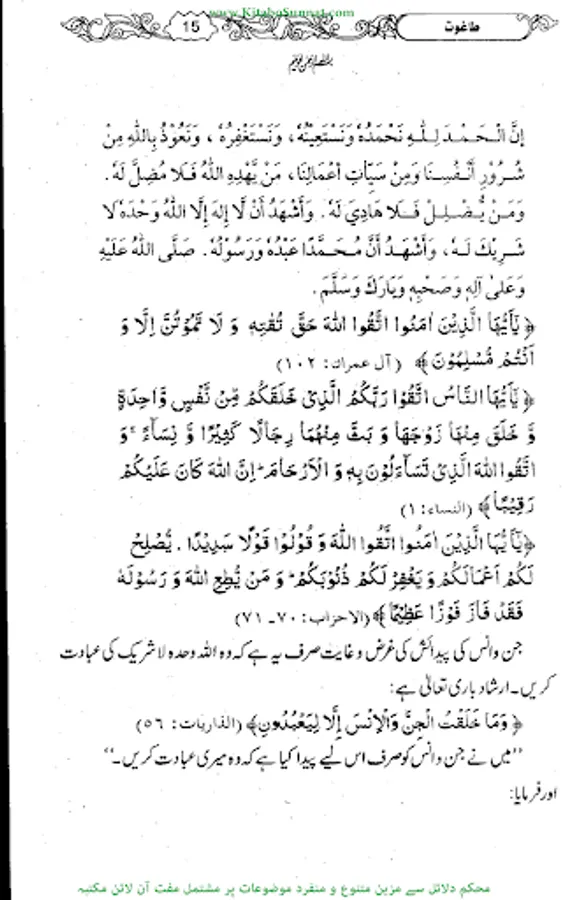 www.KitaboSunnat.com
15
طاغوت
إِنَّ الْحَمْدَ لِلَّهِ نَحْمَدُهٗ وَنَسْتَعِيْنُهٗ، وَنَسْتَغْفِرُهٗ، وَنَعُوْذُ بِاللهِ مِنْ
شُرُوْرِ أَنْفُسِنَا وَمِنْ سَيِّاٰتِ أَعْمَالِنَا، مَنْ يَّهْدِهِ اللهُ فَلَا مُضِلَّ لَهٗ.
وَمَنْ يُّضْلِلْ فَلَا هَادِيَ لَهٗ. وَأَشْهَدُ أَنْ لَّا إِلٰهَ إِلَّا اللهُ وَحْدَهٗ لَا
شَرِيْكَ لَهٗ، وَأَشْهَدُ أَنَّ مُحَمَّدًا عَبْدُهٗ وَرَسُوْلُهٗ. صَلَّى اللهُ عَلَيْهِ
وَعَلىٰ آلِهٖ وَصَحْبِهٖ وَبَارَكَ وَسَلَّمَ.
﴿يٰۤاَيُّهَا الَّذِيْنَ اٰمَنُوا اتَّقُوا اللهَ حَقَّ تُقٰتِهٖ وَ لَا تَمُوْتُنَّ اِلَّا وَ
اَنْتُمْ مُّسْلِمُوْنَ﴾ (آل عمران: ١٠٢)
﴿يٰۤاَيُّهَا النَّاسُ اتَّقُوْا رَبَّكُمُ الَّذِيْ خَلَقَكُمْ مِّنْ نَّفْسٍ وَّاحِدَةٍ
وَّ خَلَقَ مِنْهَا زَوْجَهَا وَ بَثَّ مِنْهُمَا رِجَالًا كَثِيْرًا وَّ نِسَآءً ۚ وَ
اتَّقُوا اللهَ الَّذِيْ تَسَآءَلُوْنَ بِهٖ وَ الْاَرْحَامَ ؕ اِنَّ اللهَ كَانَ عَلَيْكُمْ
رَقِيْبًا﴾ (النساء: ١)
﴿يٰۤاَيُّهَا الَّذِيْنَ اٰمَنُوا اتَّقُوا اللهَ وَ قُوْلُوْا قَوْلًا سَدِيْدًا . يُّصْلِحْ
لَكُمْ اَعْمَالَكُمْ وَ يَغْفِرْ لَكُمْ ذُنُوْبَكُمْ ؕ وَ مَنْ يُّطِعِ اللهَ وَ رَسُوْلَهٗ
فَقَدْ فَازَ فَوْزًا عَظِيْمًا﴾ (الاحزاب: ٧٠۔٧١)
جن وانس کی پیدائش کی غرض و غایت صرف یہ ہے کہ وہ اللہ وحدہ لا شریک کی عبادت
کریں۔ ارشاد باری تعالیٰ ہے:
﴿وَمَا خَلَقْتُ الْجِنَّ وَالْاِنْسَ اِلَّا لِيَعْبُدُوْنِ﴾ (الذاريات: ٥٦)
”میں نے جن وانس کو صرف اس لیے پیدا کیا ہے کہ وہ میری عبادت کریں۔“
اور فرمایا:
محکم دلائل سے مزین متنوع و منفرد موضوعات پر مشتمل مفت آن لائن مکتبہ